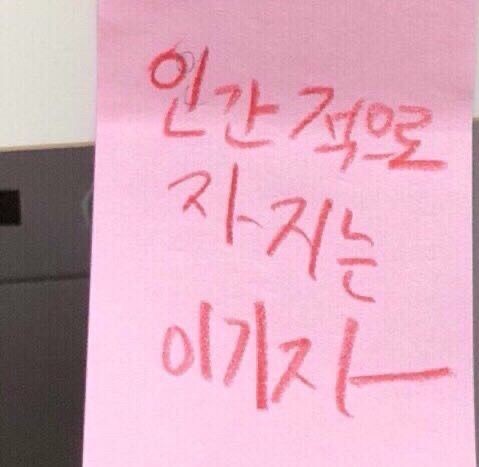 인간적으로
자지는
이기자-